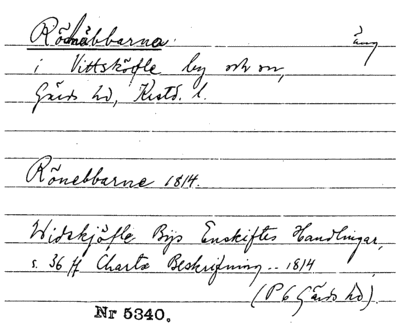 Rönäbbarna. äng
i Vittskövle by och sn,
Gärds hd, Kristd. l.
Rönebbarne 1814.
Widskjöfle Bys Enskiftes Handlingar,
s. 36 ff Charta Beskrifning .. 1814
(P 6 Gärds hd).
Nr 5340.